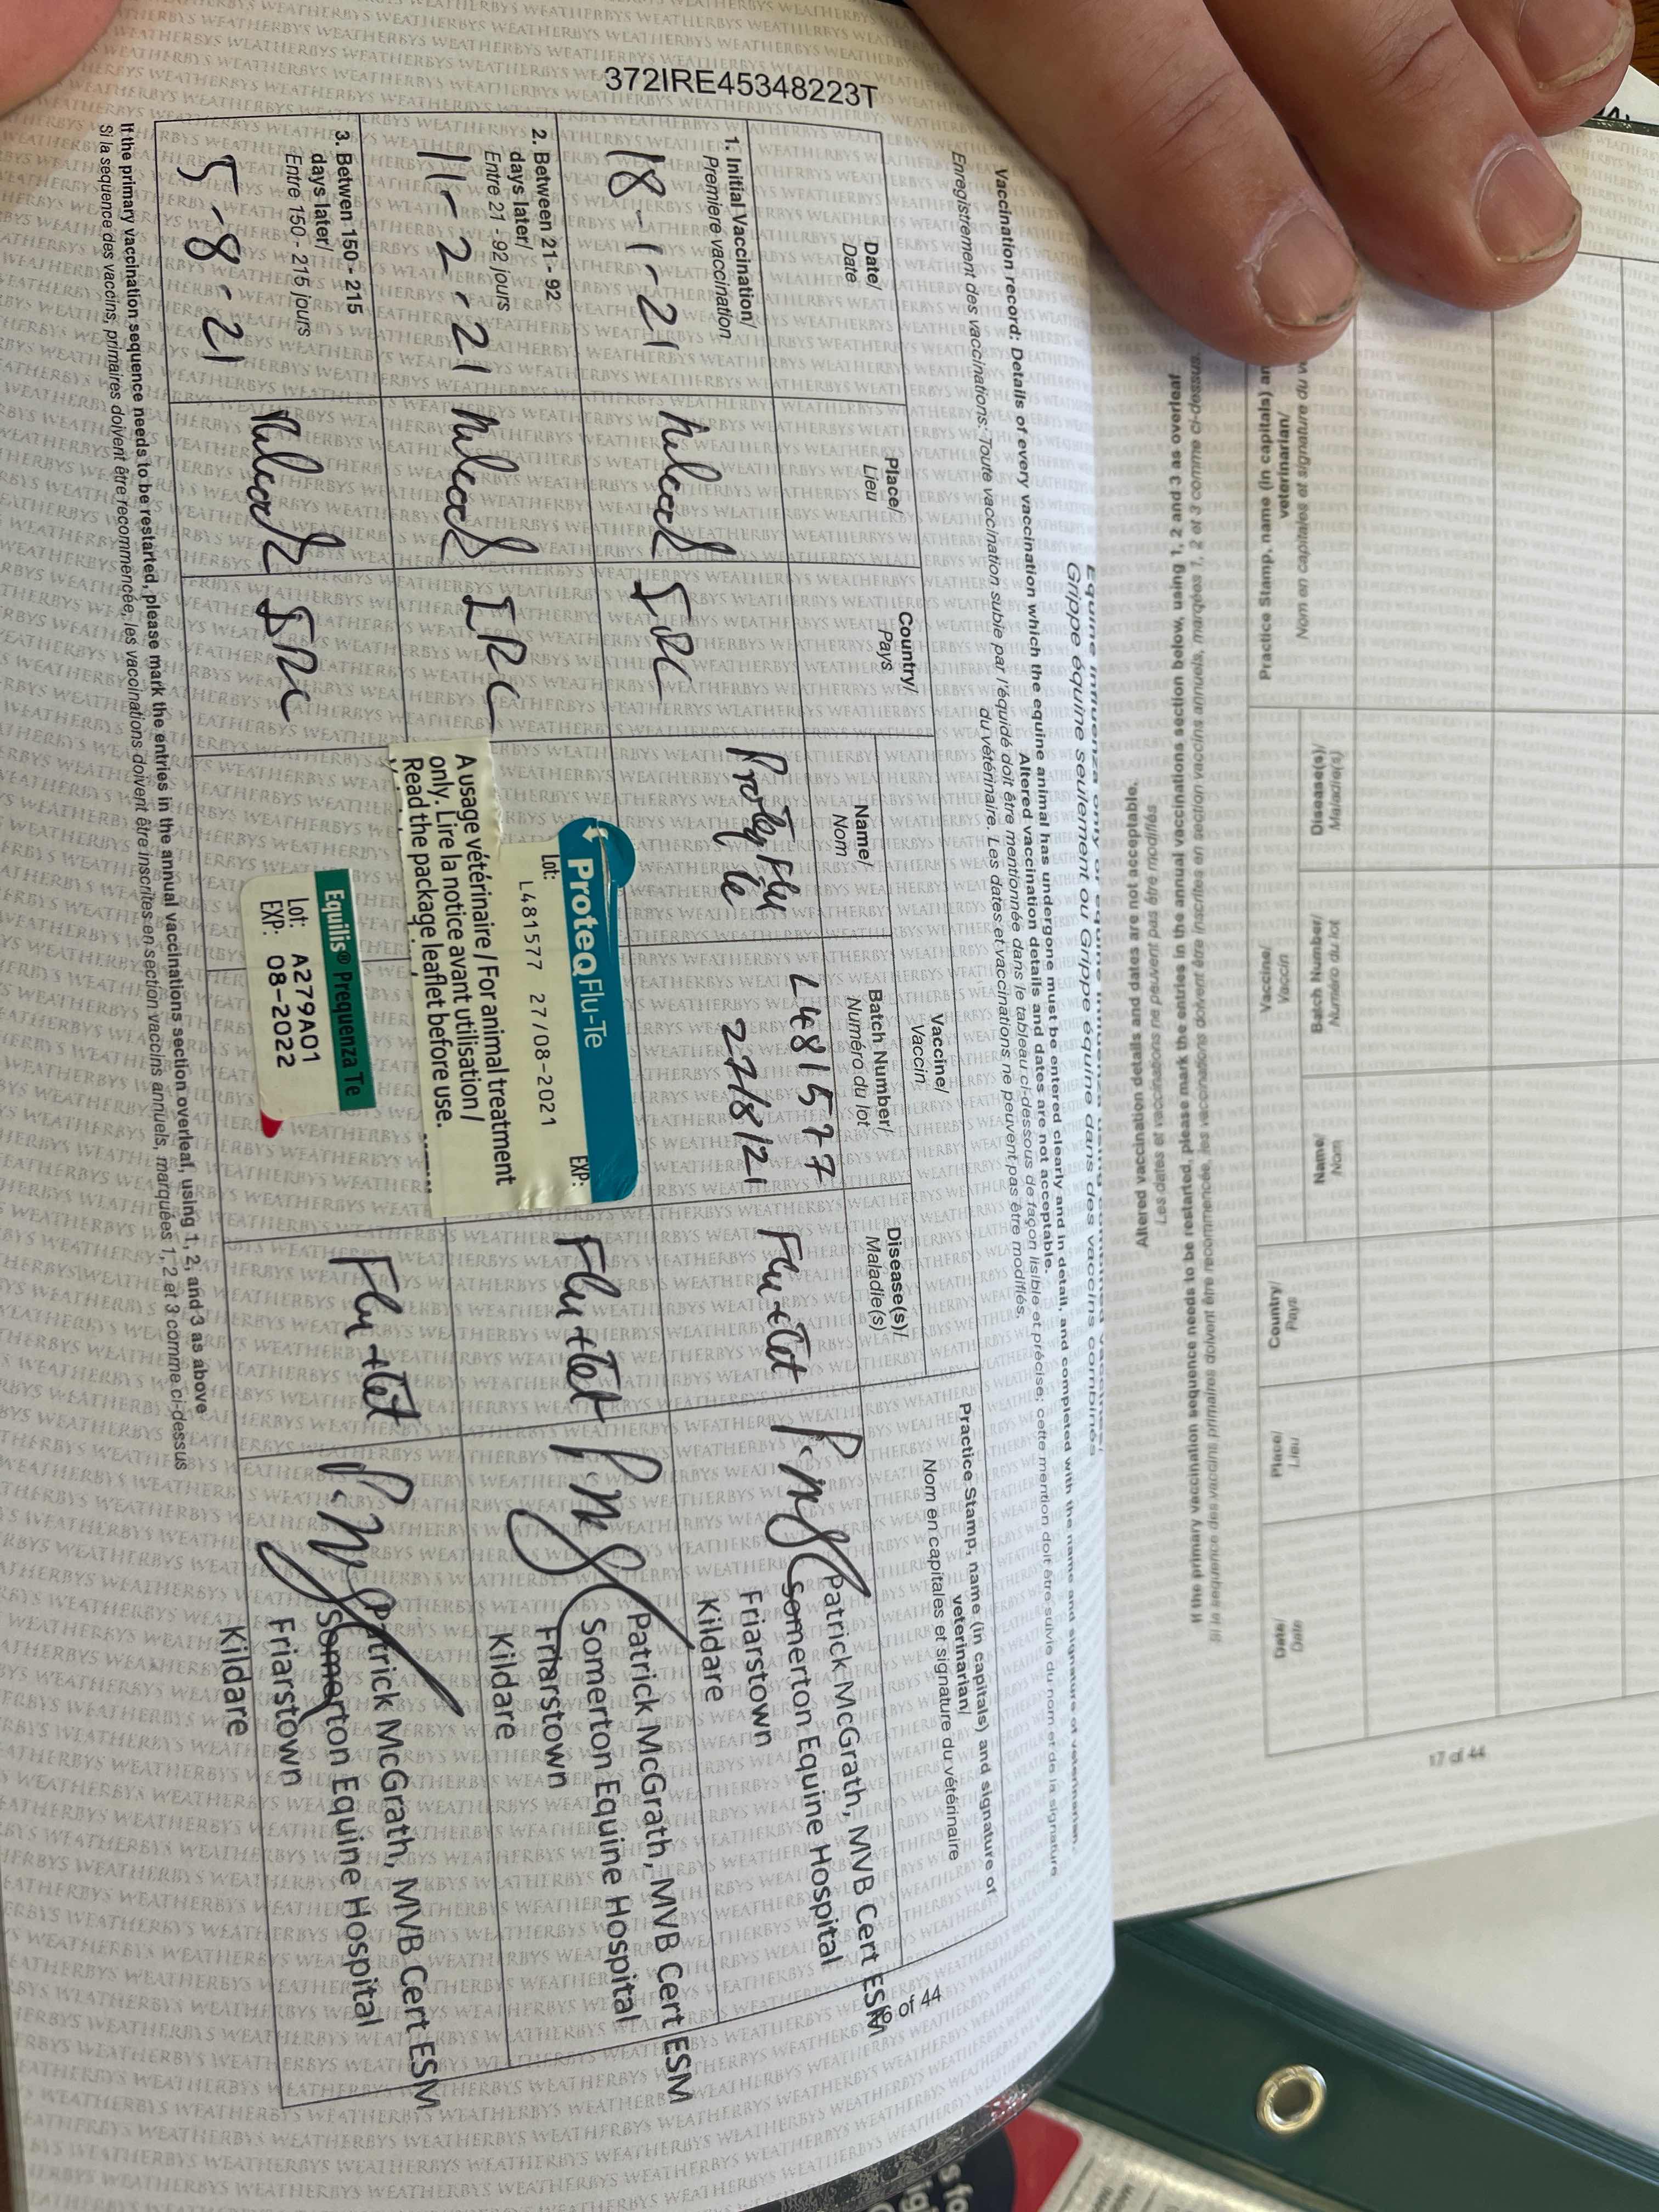 372IRE45348223T
Vaccination record: Details of every vaccination which the equine animal has undergone must be entered clearly and in detail, and completed with the name and signature of veterinarian.
Altered vaccination details and dates are not acceptable.
Enregistrement des vaccinations: Toute vaccination subie par l'équidé doit être mentionnée dans le tableau ci-dessous de façon lisible et précise; cette mention doit être suivie du nom et de la signature
du vétérinaire. Les dates et vaccinations ne peuvent pas être modifiés.
Date/
Date
Place/
Lieu
Country/
Pays
Vaccine/
Vaccin
Name/
Nom
Batch Number/
Numéro du lot
Disease(s)/
Maladie(s)
Practice Stamp, name (in capitals) and signature of
veterinarian/
Nom en capitales et signature du vétérinaire
1. Initial Vaccination/
Premiere vaccination
18-1-21
IRE
Proteq Flu
Te
L481577
27/8/21
Flu+Tet
Patrick McGrath, MVB Cert ESM
Somerton Equine Hospital
Friarstown
Kildare
2. Between 21 - 92
days later/
Entre 21 - 92 jours
11-2-21
IRE
ProteqFlu-Te
Lot: L481577 27/08-2021 EXP:
A usage vétérinaire / For animal treatment
only. Lire la notice avant utilisation /
Read the package leaflet before use.
Flu+Tet
Patrick McGrath, MVB Cert ESM
Somerton Equine Hospital
Friarstown
Kildare
3. Betwen 150 - 215
days later/
Entre 150 - 215 jours
5-8-21
IRE
Equilis® Prequenza Te
Lot: A279A01
EXP: 08-2022
Flu+Tet
Patrick McGrath, MVB Cert ESM
Somerton Equine Hospital
Friarstown
Kildare
If the primary vaccination sequence needs to be restarted, please mark the entries in the annual vaccinations section overleaf, using 1, 2, and 3 as above
Si la sequence des vaccins primaires doivent être recommencée, les vaccinations doivent être inscrites en section vaccins annuels, marquées 1, 2 et 3 comme ci-dessus
of 44
Altered vaccination details and dates are not acceptable.
Les dates et vaccinations ne peuvent pas être modifiés
If the primary vaccination sequence needs to be restarted, please mark the entries in the annual vaccinations section below, using 1, 2 and 3 as overleaf
Si la sequence des vaccins primaires doivent être recommencée, les vaccinations doivent être inscrites en section vaccins annuels, marqées 1, 2 et 3 comme ci-dessus.
Date/
Date
Place/
Lieu
Country/
Pays
Vaccine/
Vaccin
Name/
Nom
Batch Number/
Numéro du lot
Disease(s)/
Maladie(s)
Practice Stamp, name (in capitals)
veterinarian/
Nom en capitales et signature du
17 of 44